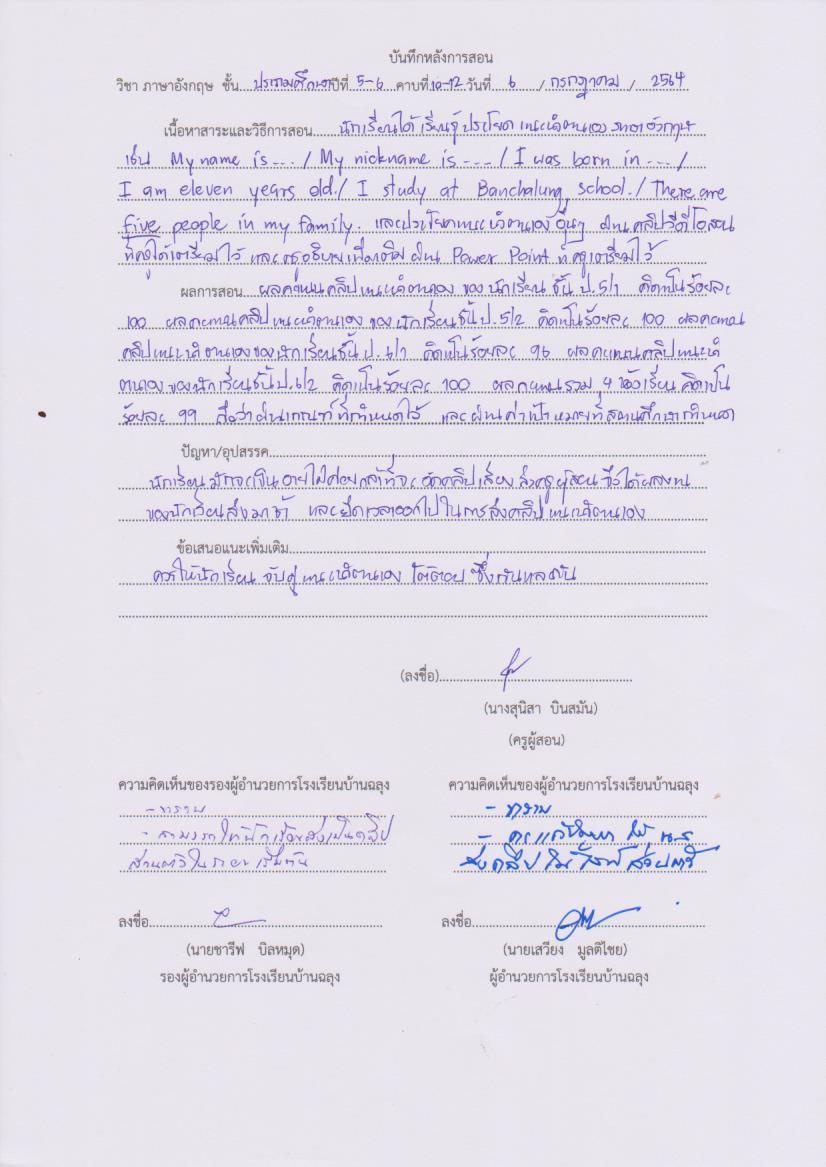 บันทึกหลังการสอน
วิชา ภาษาอังกฤษ ชั้น ประถมศึกษาปีที่ 5-6 คาบที่ 10-12 วันที่ 6 / กรกฎาคม / 2564
เนื้อหาสาระและวิธีการสอน นักเรียนได้เรียนรู้ประโยคแนะนำตนเอง ภาษาอังกฤษ
เช่น My name is --- / My nickname is --- / I was born in --- /
I am eleven years old. / I study at Banchalung school. / There are
five people in my family. และประโยคแนะนำตนเองอื่นๆ ผ่านคลิปวีดีโอสอน
ที่ครูได้เตรียมไว้ และครูอธิบายเพิ่มเติมผ่าน Power Point ที่ครูเตรียมไว้
ผลการสอน ผลคะแนนคลิปแนะนำตนเอง ของนักเรียน ชั้น ป.5/1 คิดเป็นร้อยละ
100 ผลคะแนนคลิปแนะนำตนเอง ของนักเรียนชั้น ป.5/2 คิดเป็นร้อยละ 100 ผลคะแนน
คลิปแนะนำตนเองของนักเรียนชั้น ป.6/1 คิดเป็นร้อยละ 96 ผลคะแนนคลิปแนะนำ
ตนเองของนักเรียนชั้น ป.6/2 คิดเป็นร้อยละ 100 ผลคะแนนรวม 4 ห้องเรียน คิดเป็น
ร้อยละ 99 ถือว่าผ่านเกณฑ์ที่กำหนดไว้ และผ่านค่าเป้าหมายที่สถานศึกษากำหนด
ปัญหา/อุปสรรค
นักเรียนมักจะเขินอายไม่ค่อยกล้าที่จะอัดคลิปเสียง ส่งครูผู้สอน จึงได้ผลงาน
ของนักเรียนส่งมาช้า และยืดเวลาออกไปในการส่งคลิปแนะนำตนเอง
ข้อเสนอแนะเพิ่มเติม
ควรให้นักเรียน จับคู่แนะนำตนเอง โต้ตอบ ซึ่งกันและกัน
(ลงชื่อ)
(นางสุนิสา บินสมัน)
(ครูผู้สอน)
ความคิดเห็นของรองผู้อำนวยการโรงเรียนบ้านฉลุง
- ทราบ
- สามารถให้นักเรียนส่งเป็นคลิป
ส่วนตัวใน
ความคิดเห็นของผู้อำนวยการโรงเรียนบ้านฉลุง
- ทราบ
- ให้ น.ร
ส่งคลิป ส่วนตัว
ลงชื่อ
(นายชารีฟ บิลหมุด)
รองผู้อำนวยการโรงเรียนบ้านฉลุง
ลงชื่อ
(นายเสวียง มูลติไชย)
ผู้อำนวยการโรงเรียนบ้านฉลุง